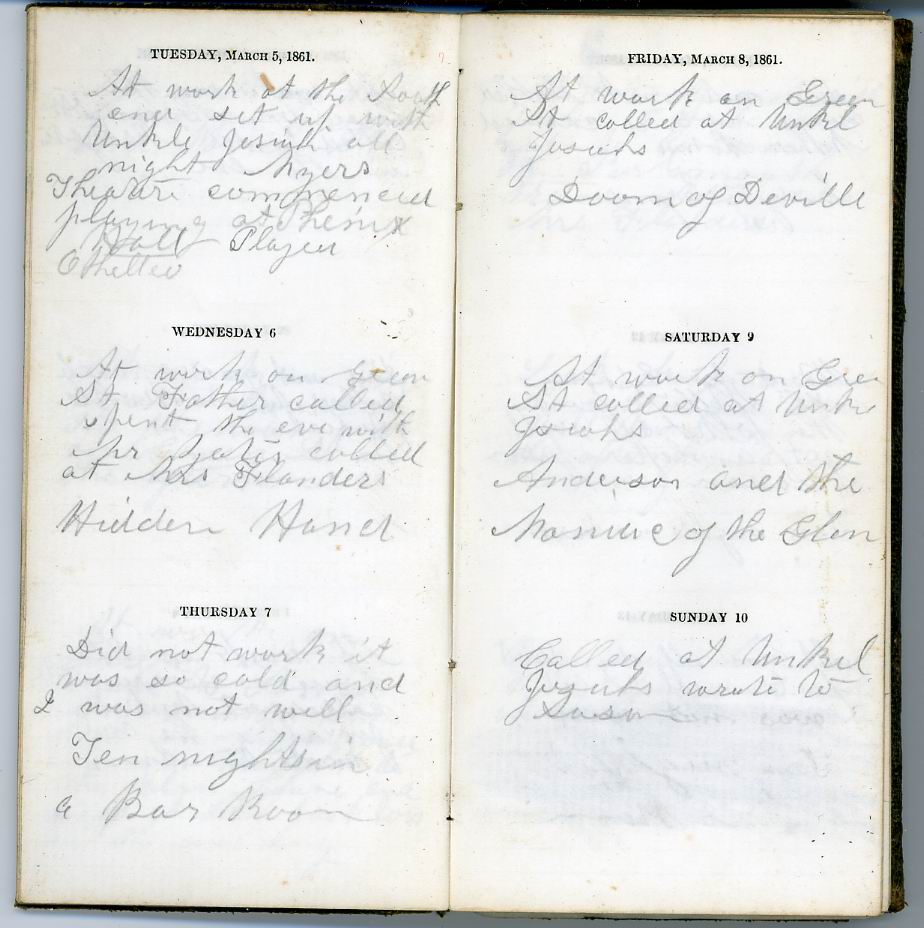 TUESDAY, MARCH 5, 1861.
At work at the South
end set up with
Unkle Josiah all
night Myers
Theatre commenced
playing at Phenix
Hall Played
Othello
WEDNESDAY 6
At work on Green
St Father called
spent the eve with
Mr called
at Mrs Flanders
Hidden Hand
THURSDAY 7
Did not work it
was so cold and
I was not well
Ten nights in
a Bar Room
FRIDAY, MARCH 8, 1861.
At work on Green
St called at Unkel
Josiahs
Doom of Deville
SATURDAY 9
At work on Gree
St called at Unkel
Josiahs
Anderson and the
Maniac of the Glen
SUNDAY 10
Called at Unkel
Josiahs wrote to
Susan